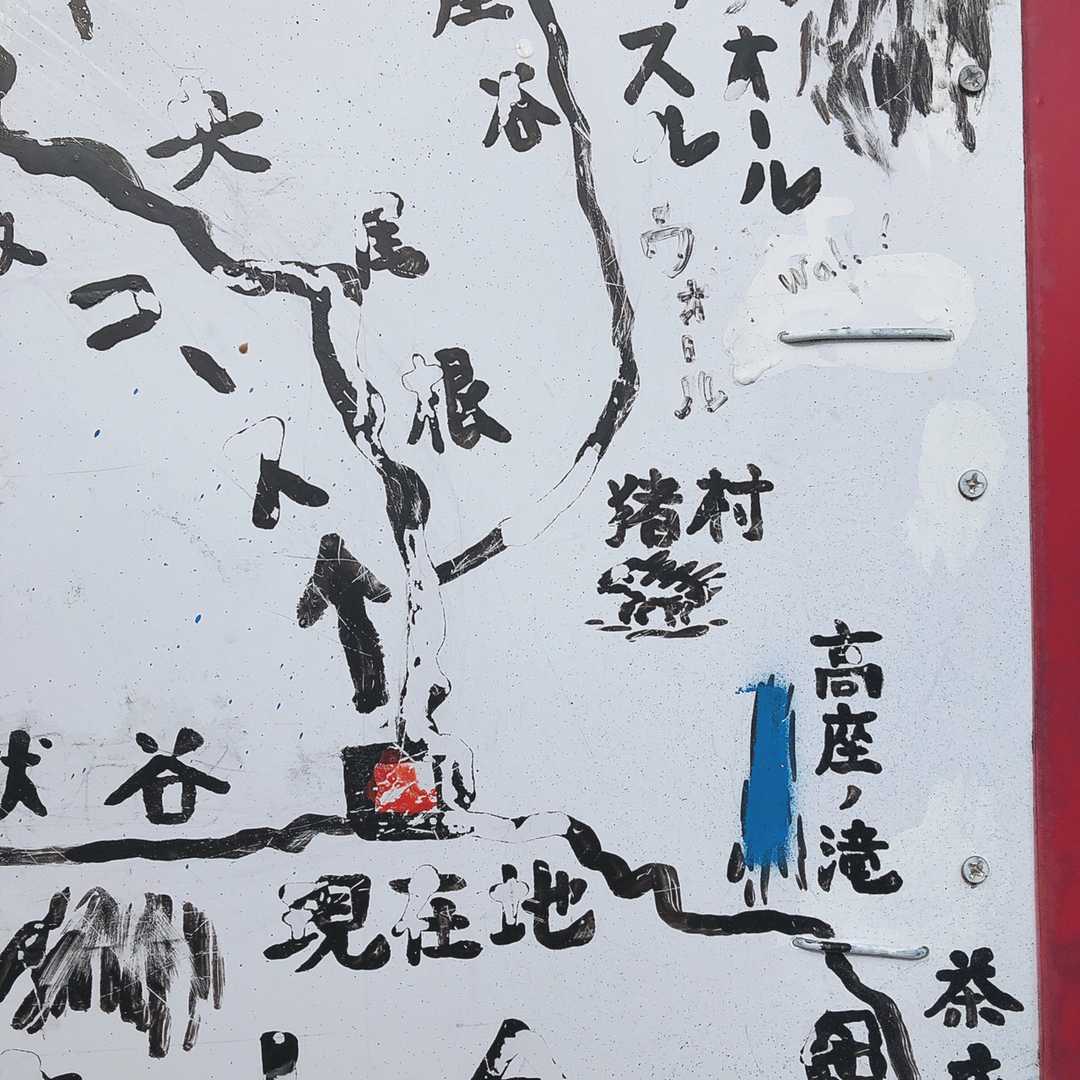 座谷
スレ
オール
ウォール
Wall!
中央尾根
コート
猪村
高座ノ滝
伏谷
現在地
茶